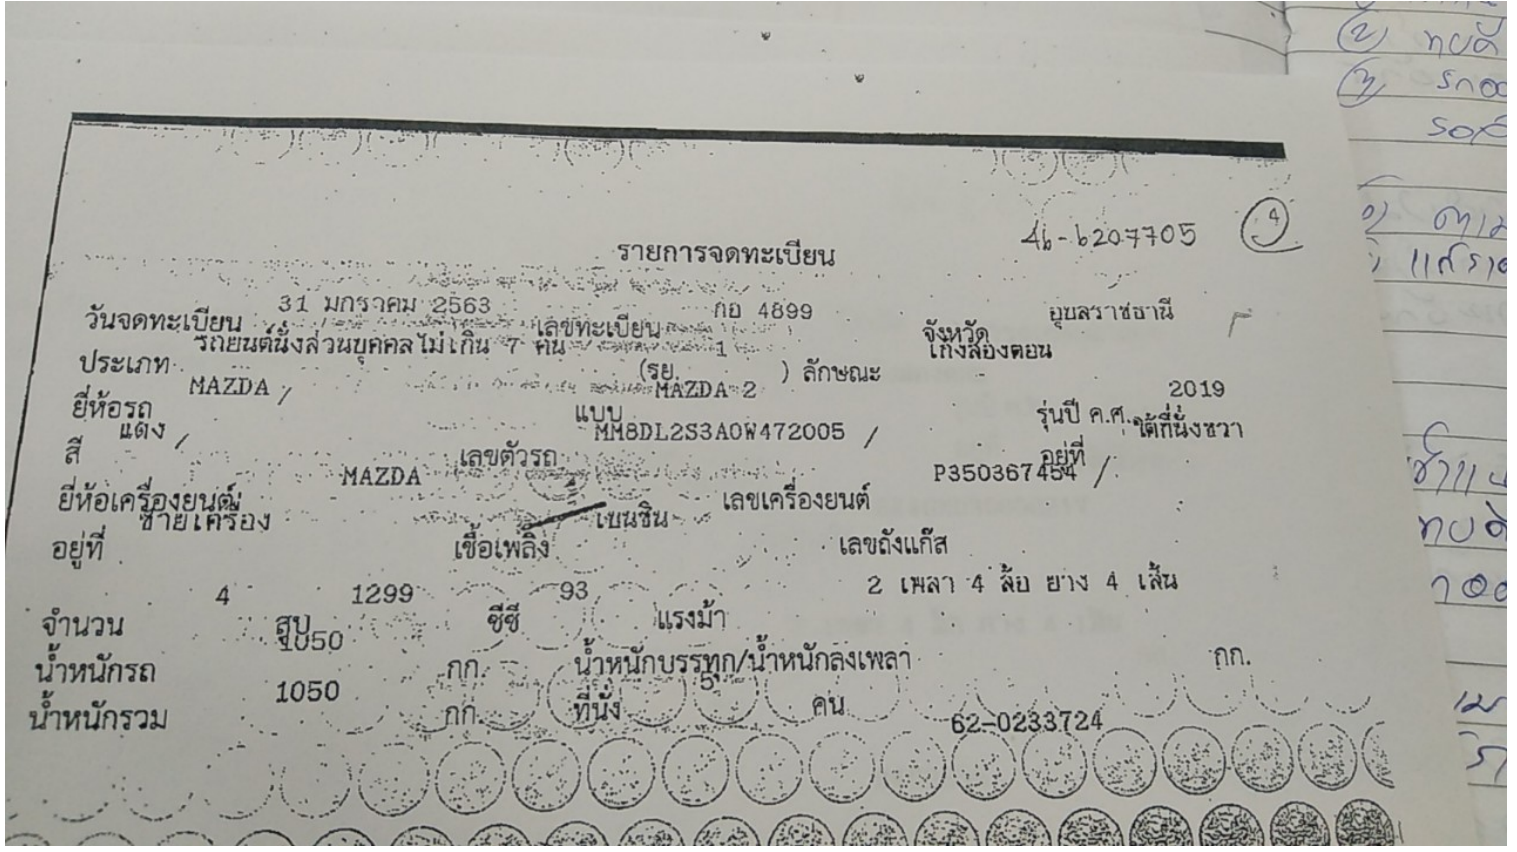 46-6207705 4
รายการจดทะเบียน
วันจดทะเบียน 31 มกราคม 2563 เลขทะเบียน กอ 4899 จังหวัด อุบลราชธานี
ประเภท รถยนต์นั่งส่วนบุคคลไม่เกิน 7 คน (รย. 1 ) ลักษณะ เก๋งสองตอน
ยี่ห้อรถ MAZDA / แบบ MAZDA 2 รุ่นปี ค.ศ. 2019
สี แดง / เลขตัวรถ MM8DL2S3A0W472005 / อยู่ที่ ใต้ที่นั่งขวา
ยี่ห้อเครื่องยนต์ MAZDA เลขเครื่องยนต์ P350367454 /
อยู่ที่ ซ้ายเครื่อง เชื้อเพลิง เบนซิน เลขถังแก๊ส
จำนวน 4 สูบ 1299 ซีซี 93 แรงม้า 2 เพลา 4 ล้อ ยาง 4 เส้น
น้ำหนักรถ 1050 กก. น้ำหนักบรรทุก/น้ำหนักลงเพลา กก.
น้ำหนักรวม 1050 กก. ที่นั่ง 5 คน 62-0233724